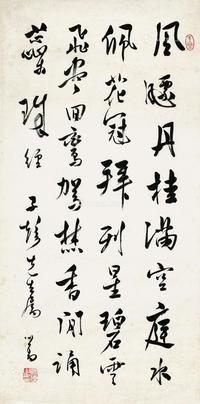 風飐丹桂滿空庭水
佩花冠拜列星碧雲
飛盡回鸞駕焚香閒誦
蕊珠經 子彭先生屬
溥儒